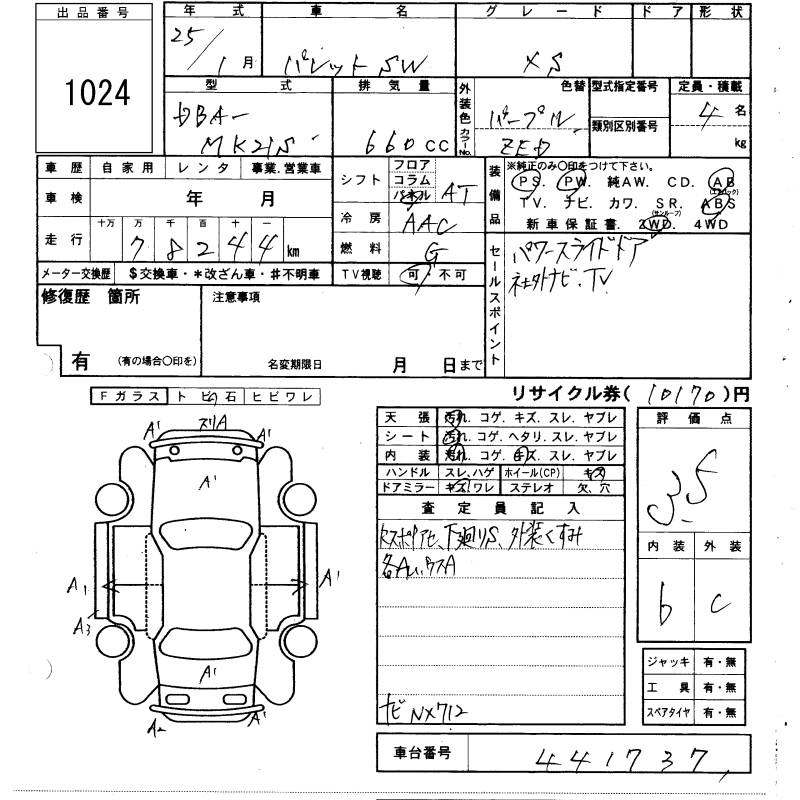 出品番号
1024
年式 車名 グレード ドア 形状
25/1月 パレットSW XS
型式 排気量 外装色 カラーNo. 色替 型式指定番号 定員・積載
DBA- MK21S 660cc パープル ZED 類別区別番号 4名 kg
車歴 自家用 レンタ 事業.営業車
車検 年 月
走行 十万 万 千 百 十 一
7 8 2 4 4 km
メーター交換歴 $交換車・*改ざん車・#不明車
シフト フロア コラム パネル AT
冷房 AAC
燃料 G
TV視聴 可・不可
装備品 ※純正のみ〇印をつけて下さい。
PS. PW. 純AW. CD. AB(エアバック)
TV. ナビ. カワ. SR.(サンルーフ) ABS
新車保証書. 2WD. 4WD
セールスポイント
パワースライドドア
社外ナビ、TV
修復歴 箇所
有 (有の場合〇印を)
注意事項
名変期限日 月 日まで
リサイクル券(10170)円
Fガラス トビ石 ヒビワレ
A' ズリA A'
A'
A1 A'
A3
A'
A2 A'
天張 汚れ. コゲ. キズ. スレ. ヤブレ
シート 汚れ. コゲ. ヘタリ. スレ. ヤブレ
内装 汚れ. コゲ. キズ. スレ. ヤブレ
ハンドル スレ、ハゲ ホイール(CP) キズ
ドアミラー キズ、ワレ ステレオ 欠、穴
査定員記入
下廻りS、外装くすみ
各A
ナビ NX712
評価点
3.5
内装 外装
b C
ジャッキ 有・無
工具 有・無
スペアタイヤ 有・無
車台番号 441737